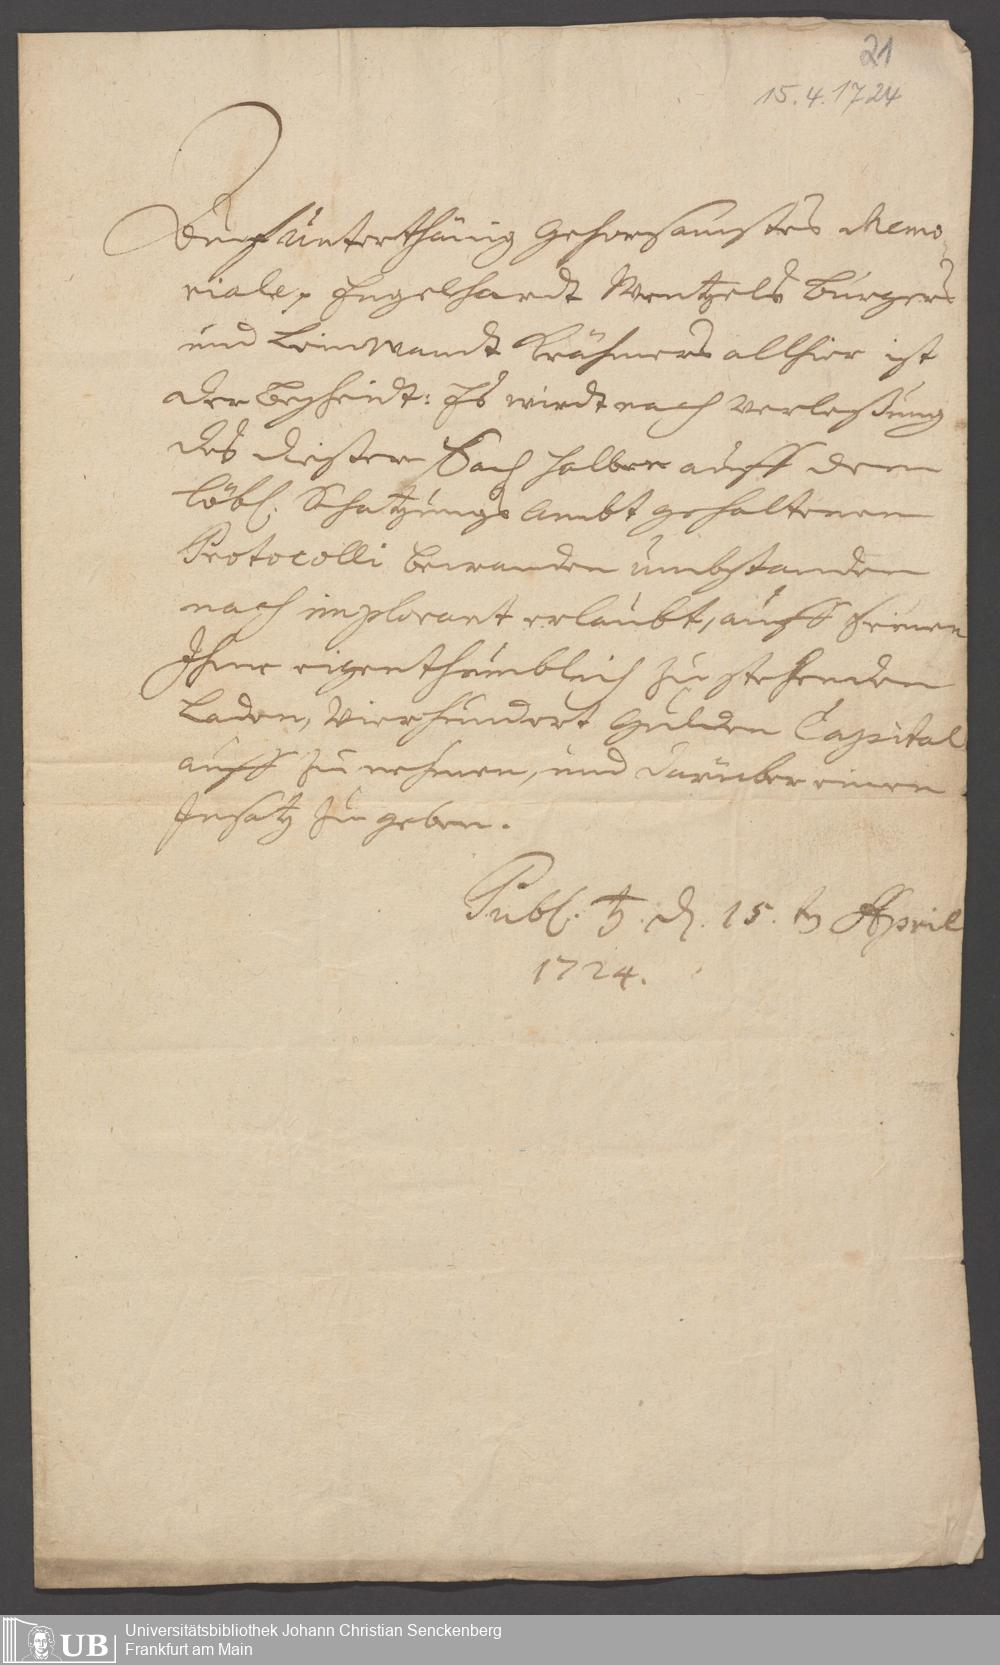 21
15.4.1724
Auff unterthänig gehorsambstes Memo-
riale, Engelhardt Wentzels Burgers
und Leinwandt Krähmers allhier ist
der Bescheidt: Es wirdt nach verleßung
des dießer Sach halber auff dem
löbl. Schatzungs Ambt gehaltenen
Protocolli bewanden umbstanden
nach implorant erlaubt, auff seinen
Ihme eigenthumblich zu stehenden
Laden, Vierhundert Gulden Capital
auff zu nehmen, und darüber einen
Insatz zu geben.
Publ. ♄. d. 15. t April
1724.
UB
Universitätsbibliothek Johann Christian Senckenberg
Frankfurt am Main